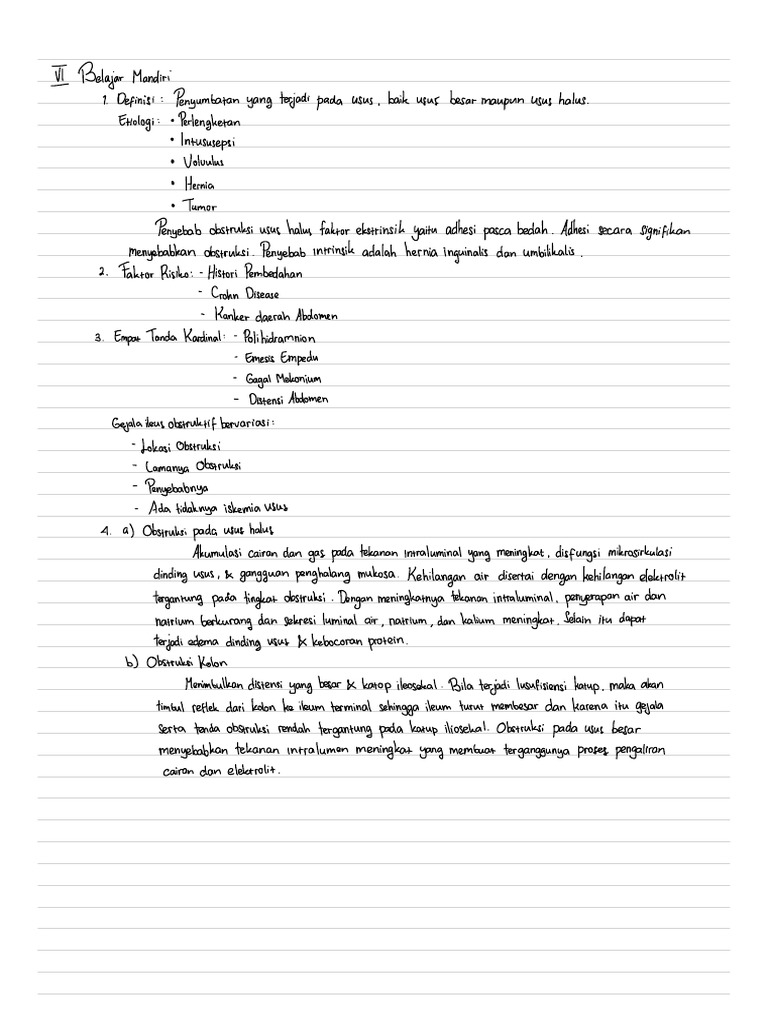 VI Belajar Mandiri
1. Definisi : Penyumbatan yang terjadi pada usus, baik usus besar maupun usus halus.
Etiologi : • Perlengketan
• Intususepsi
• Volvulus
• Hernia
• Tumor
Penyebab obstruksi usus halus faktor ekstrinsik yaitu adhesi pasca bedah. Adhesi secara signifikan
menyebabkan obstruksi. Penyebab intrinsik adalah hernia inguinalis dan umbilikalis.
2. Faktor Risiko : - Histori Pembedahan
- Crohn Disease
- Kanker daerah Abdomen
3. Empat Tanda Kardinal : - Polihidramnion
- Emesis Empedu
- Gagal Mekonium
- Distensi Abdomen
Gejala ileus obstruktif bervariasi :
- Lokasi Obstruksi
- Lamanya Obstruksi
- Penyebabnya
- Ada tidaknya iskemia usus
4. a) Obstruksi pada usus halus
Akumulasi cairan dan gas pada tekanan intraluminal yang meningkat, disfungsi mikrosirkulasi
dinding usus, & gangguan penghalang mukosa. Kehilangan air disertai dengan kehilangan elektrolit
tergantung pada tingkat obstruksi. Dengan meningkatnya tekanan intraluminal, penyerapan air dan
natrium berkurang dan sekresi luminal air, natrium, dan kalium meningkat. Selain itu dapat
terjadi edema dinding usus & kebocoran protein.
b) Obstruksi Kolon
Menimbulkan distensi yang besar & katop ileosekal. Bila terjadi lusufisiensi katup, maka akan
timbul reflek dari kolon ke ileum terminal sehingga ileum turut membesar dan karena itu gejala
serta tanda obstruksi rendah tergantung pada katup iliosekal. Obstruksi pada usus besar
menyebabkan tekanan intralumen meningkat yang membuat terganggunya proses pengaliran
cairan dan elektrolit.